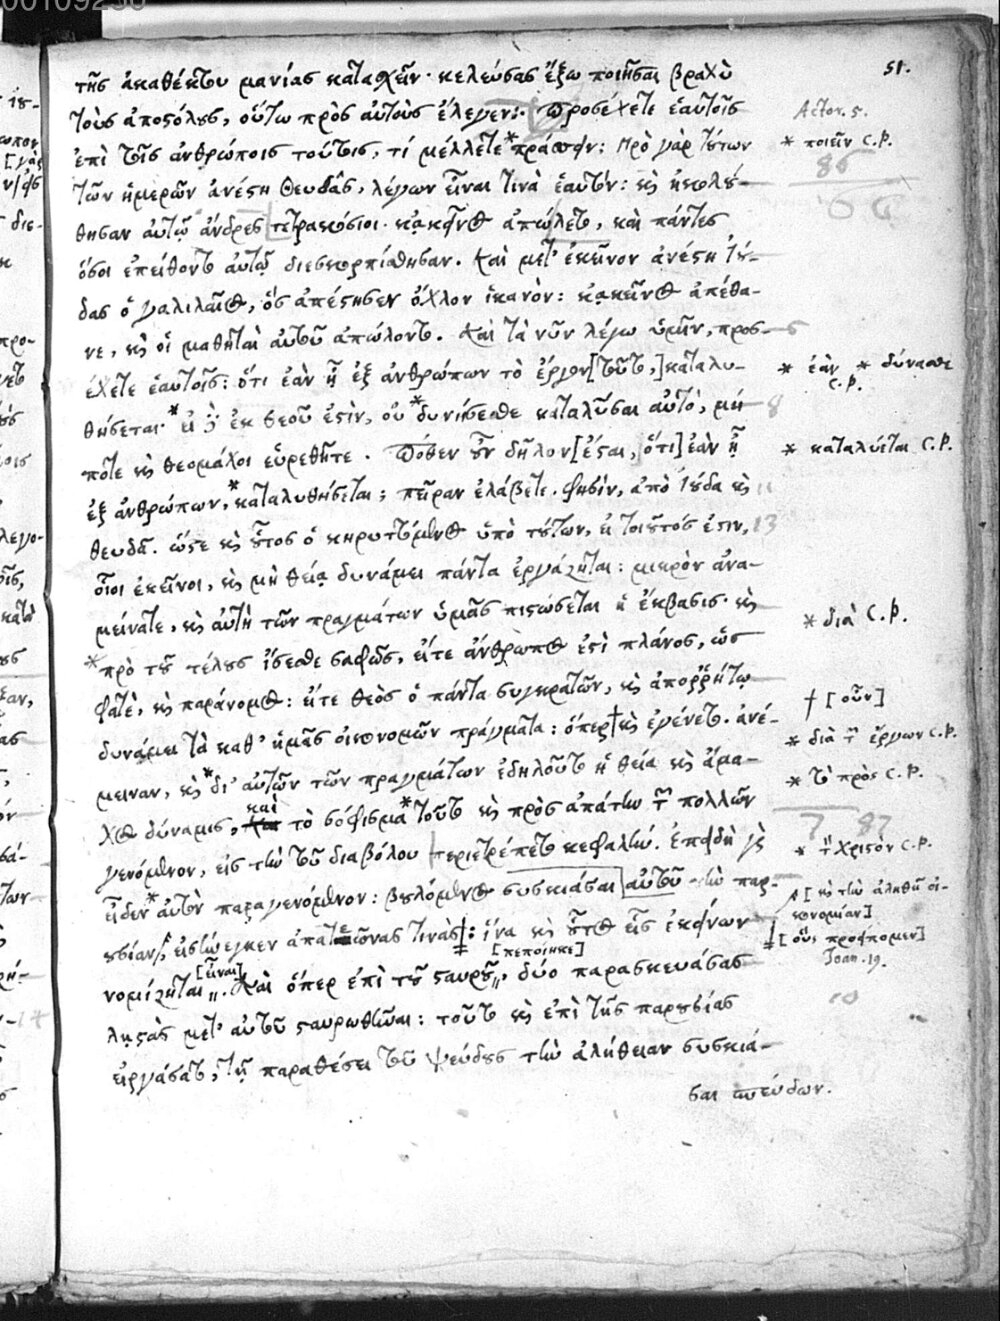 00109250
51.
τῆς ἀκαθέκτου μανίας κατασχεῖν· κελεύσας ἔξω ποιῆσαι βραχὺ
τοὺς ἀποστόλους, οὕτω πρὸς αὐτοὺς ἔλεγεν: Προσέχετε ἑαυτοῖς
Actor. 5.
ἐπὶ τοῖς ἀνθρώποις τούτοις, τί μέλλετε *πράσσειν: Πρὸ γὰρ τούτων
* ποιεῖν C.P.
86
τῶν ἡμερῶν ἀνέστη Θευδᾶς, λέγων εἶναι τινὰ ἑαυτόν: καὶ ἠκολού-
θησαν αὐτῷ ἄνδρες τετρακόσιοι· κἀκεῖνος ἀπώλετο, καὶ πάντες
ὅσοι ἐπείθοντο αὐτῷ διεσκορπίσθησαν. Καὶ μετ' ἐκεῖνον ἀνέστη Ἰού-
δας ὁ γαλιλαῖος, ὃς ἀπέστησεν ὄχλον ἱκανὸν: κἀκεῖνος ἀπέθα-
νε, καὶ οἱ μαθηταὶ αὐτοῦ ἀπώλοντο. Καὶ τὰ νῦν λέγω ὑμῖν, προσ-
έχετε ἑαυτοῖς: ὅτι ἐὰν ᾖ ἐξ ἀνθρώπων τὸ ἔργον [τοῦτο,] καταλυ-
* ἐὰν * δύνασθε
C.P.
θήσεται· * εἰ δὲ ἐκ θεοῦ ἐστὶν, οὐ *δυνήσεσθε καταλῦσαι αὐτό, μή
8
ποτε καὶ θεομάχοι εὑρεθῆτε. Πόθεν οὖν δῆλον [ἔσται, ὅτι] ἐὰν ᾖ
* καταλύεται C.P.
ἐξ ἀνθρώπων, *καταλυθήσεται; πεῖραν ἐλάβετε. φησὶν, ἀπὸ Ἰούδα καὶ
11
θευδᾶ. ὥστε καὶ οὗτος ὁ κηρυττόμενος ὑπὸ τούτων, εἰ τοιοῦτός ἐστιν,
13
οἷοι ἐκεῖνοι, καὶ μὴ θείᾳ δυνάμει πάντα ἐργάζηται: μικρὸν ἀνα-
μείνατε, καὶ αὐτὴ τῶν πραγμάτων ὑμᾶς πιστώσεται ἡ ἔκβασις· καὶ
* διὰ C.P.
*πρὸ τοῦ τέλους ἴσεσθε σαφῶς, εἴτε ἄνθρωπος ἐστὶ πλάνος, ὥς
φατὲ, καὶ παράνομος: εἴτε θεὸς ὁ πάντα συγκρατῶν, καὶ ἀπορρήτῳ
† [οὖν]
δυνάμει τὰ καθ' ἡμᾶς οἰκονομῶν πράγματα: ὅπερ† καὶ ἐγένετο. ἀνέ-
* διὰ τῶν ἔργων C.P.
μειναν, καὶ *δι' αὐτῶν τῶν πραγμάτων ἐδηλοῦτο ἡ θεία καὶ ἄμα-
* τὸ πρὸς C.P.
χος δύναμις, καὶ τὸ σόφισμα *τοῦτο καὶ πρὸς ἀπάτην τῶν πολλῶν
7 87
γενόμενον, εἰς τὴν τοῦ διαβόλου περιετρέπετο κεφαλήν. ἐπειδὴ γὰρ
* τὸν Χριστὸν C.P.
εἶδεν *αὐτὸν παραγενόμενον: βουλόμενος συσκιάσαι αὐτοῦ τὴν παρ-
[καὶ τὴν ἀληθῆ οἰ-
κονομίαν]
ουσίαν, εἰσήνεγκεν ἀπατεῶνας τινὰς‡: ἵνα καὶ οὗτος εἷς ἐκείνων
‡ [οὓς προείπομεν]
Joan. 19.
νομίζηται [εἶναι]. Καὶ ὅπερ ἐπὶ τοῦ σταυροῦ [πεποίηκε], δύο παρασκευάσας
10
λῃστὰς μετ' αὐτοῦ σταυρωθῆναι: τοῦτο καὶ ἐπὶ τῆς παρουσίας
εἰργάσατο, τῇ παραθέσει τοῦ ψεύδους τὴν ἀλήθειαν συσκιά-
σαι σπεύδων.